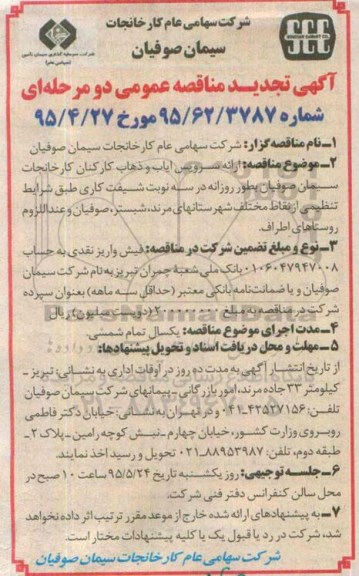 شرکت سهامی عام کارخانجات
سیمان صوفیان
آگهی تجدید مناقصه عمومی دو مرحله‌ای
شماره ۹۵/۶۲/۳۷۸۷ مورخ ۹۵/۴/۲۷
۱ـ نام مناقصه‌گزار: شرکت سهامی عام کارخانجات سیمان صوفیان
۲ـ موضوع مناقصه: ارائه سرویس ایاب و ذهاب کارکنان کارخانجات
سیمان صوفیان بطور روزانه در سه نوبت شیفت کاری طبق شرایط
تنظیمی از نقاط مختلف شهرستانهای مرند، شبستر، صوفیان و عنداللزوم
روستاهای اطراف.
۳ـ نوع و مبلغ تضمین شرکت در مناقصه: فیش واریز نقدی به حساب
۰۱۰۶۰۴۷۹۴۷۰۰۸ بانک ملی شعبه چمران تبریز به نام شرکت سیمان
صوفیان و یا ضمانت‌نامه بانکی معتبر (حداقل سه ماهه) بعنوان سپرده
شرکت در مناقصه به مبلغ (دویست میلیون) ریال
۴ـ مدت اجرای موضوع مناقصه: یکسال تمام شمسی.
۵ـ مهلت و محل دریافت اسناد و تحویل پیشنهادها:
از تاریخ انتشار آگهی به مدت ده روز در آوقات اداری به نشانی تبریز ـ
کیلومتر ۳۳ جاده مرند، امور بازرگانی ـ پیمانهای شرکت سیمان صوفیان
تلفن: ۴۲۵۲۷۱۵۶-۰۴۱ و در تهران به نشانی: خیابان دکتر فاطمی
روبروی وزارت کشور، خیابان چهارم ـ نبش کوچه رامین ـ پلاک ۲ ـ
طبقه دوم، تلفن: ۸۸۹۵۳۹۸۷-۰۲۱ تحویل و رسید اخذ نمایند.
۶ـ جلسه توجیهی: روز یکشنبه تاریخ ۹۵/۵/۲۴ ساعت ۱۰ صبح در
محل سالن کنفرانس دفتر فنی شرکت.
۷ـ به پیشنهادهای ارائه شده خارج از موعد مقرر ترتیب اثر داده نخواهد
شد، شرکت در رد یا قبول یک یا کلیه پیشنهادات مختار است.
شرکت سهامی عام کارخانجات سیمان صوفیان